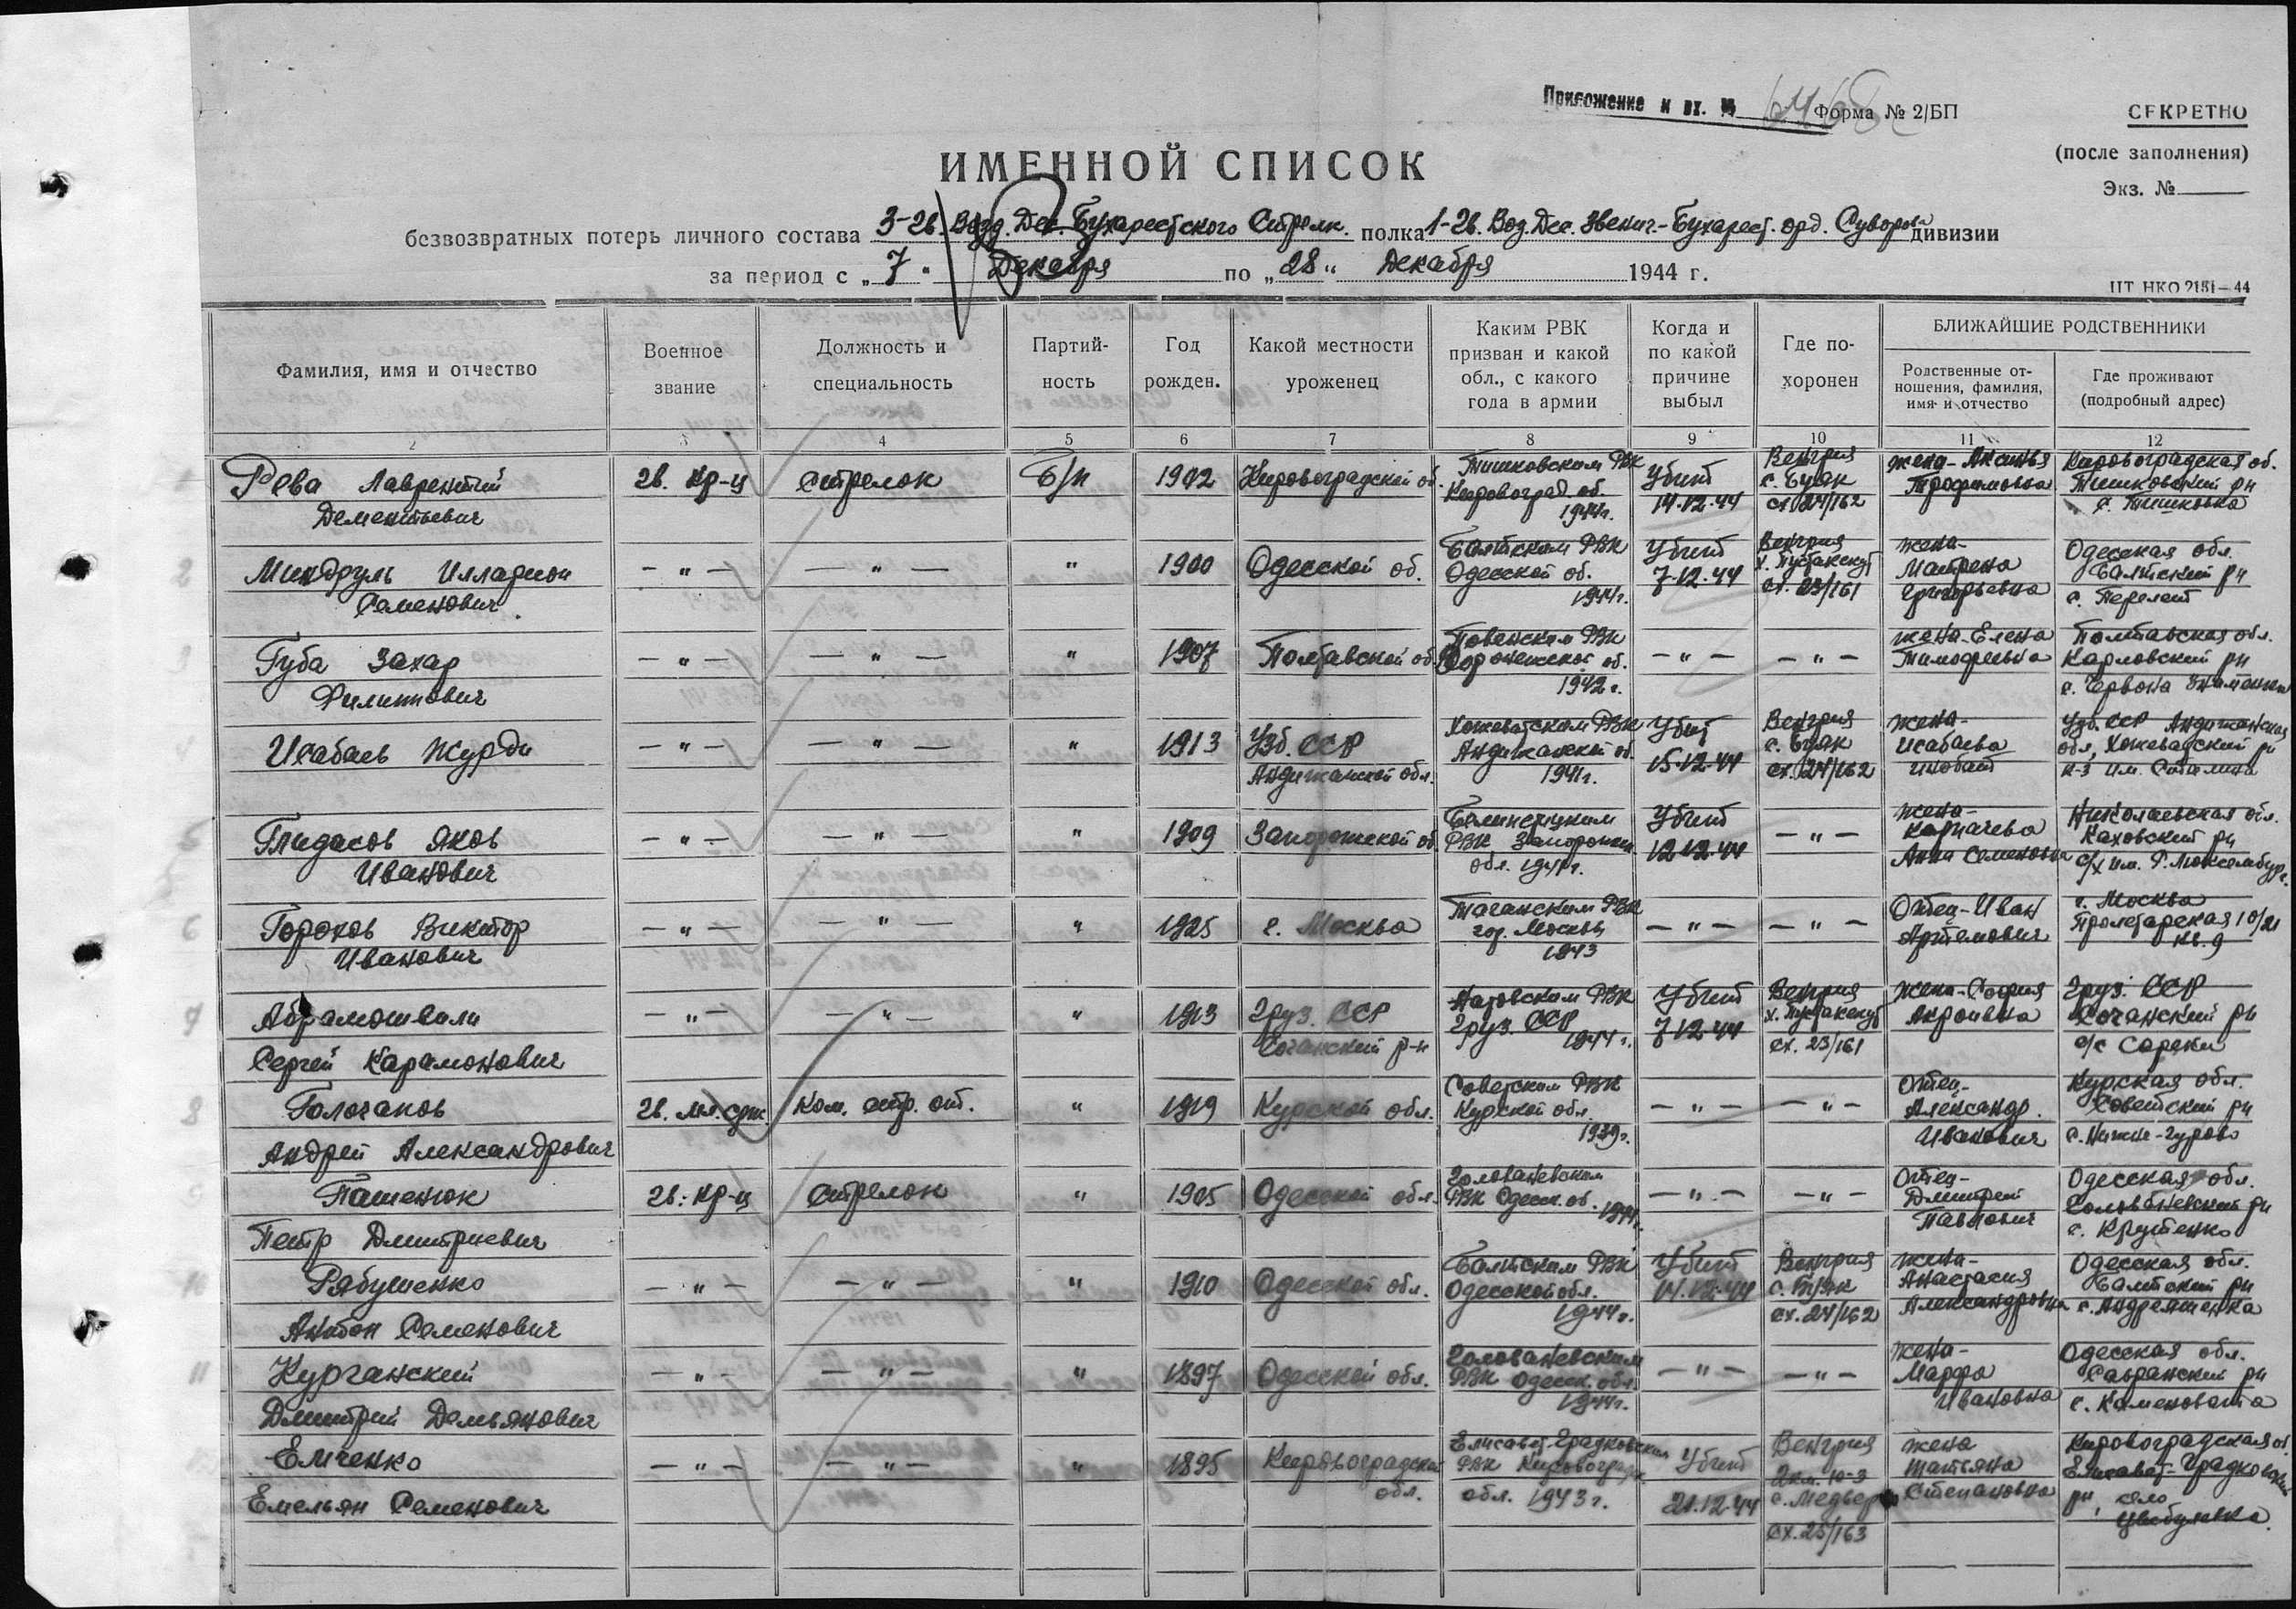 Приложение к вх. № Форма № 2/БП
СЕКРЕТНО
(после заполнения)
Экз. №
ИМЕННОЙ СПИСОК
безвозвратных потерь личного состава 3-гв. Возд. Дес. Бухарестского Стрелк. полка 1-гв. Возд. Дес. Звениг.-Бухарест. орд. Суворова дивизии
за период с „7" Декабря по „28" Декабря 1944 г.
ЦТ НКО 2181—44
Фамилия, имя и отчество
Военное звание
Должность и специальность
Партий-ность
Год рожден.
Какой местности уроженец
Каким РВК призван и какой обл., с какого года в армии
Когда и по какой причине выбыл
Где по-хоронен
БЛИЖАЙШИЕ РОДСТВЕННИКИ
Родственные от-ношения, фамилия, имя и отчество
Где проживают (подробный адрес)
2 3 4 5 6 7 8 9 10 11 12
1 Рева Лаврентий Дементьевич гв. кр-ц стрелок б/п 1902 Кировоградской об. Тишковским РВК Кировоград. об. 1944г. Убит 14.12.44 Венгрия с. Буяк сх. 24/162 жена-Аксинья Трофимовна Кировоградская об. Тишковский рн с. Тишковка
2 Миндруль Илларион Семенович — " — — " — " 1900 Одесской об. Балтским РВК Одесской об. 1944г. Убит 7.12.44 Венгрия х. Пустакскут сх. 23/161 жена-Матрена Григорьевна Одесская обл. Балтский рн с. Перелет
3 Губа Захар Филиппович — " — — " — " 1907 Полтавской об. РВК Воронежской об. 1942г. — " — — " — жена-Елена Тимофеевна Полтавская обл. Карловский рн с. Червона Знаменка
4 Исабаев Журди — " — — " — " 1913 Узб. ССР Андижанской обл. Хожеватским РВК Андижанской об. 1941г. Убит 15.12.44 Венгрия с. Буяк сх. 24/162 жена-Исабаева Узб. ССР Андижанская обл, Хожевадский рн к-з им. Сталина
5 Глидасов Яков Иванович — " — — " — " 1909 Запорожской об. РВК Запорожск. обл. 1941г. Убит 12.12.44 — " — жена-Карпачева Анна Семеновна Николаевская обл. Каховский рн с/х им. Р. Люксембург
6 Горохов Виктор Иванович — " — — " — " 1925 г. Москва Таганским РВК гор. Москвы 1943 — " — — " — Отец-Иван Артемович г. Москва Пролетарская 10/21 кв. 9
7 Абрамошвили Сергей Карамонович — " — — " — " 1913 Груз. ССР р-н РВК Груз. ССР 1944г. Убит 7.12.44 Венгрия х. Пустакскут сх. 23/161 жена-София Груз. ССР рн
8 Голочанов Андрей Александрович гв. мл. срж. Ком. стр. отд. " 1919 Курской обл. Советским РВК Курской обл. 1939г. — " — — " — Отец-Александр Иванович Курская обл. Советский рн с. Нижн-Гурово
9 Пашенюк Петр Дмитриевич гв. кр-ц стрелок " 1905 Одесской обл. Голованевским РВК Одесск. об. 1944г. — " — — " — Отец-Дмитрий Павлович Одесская обл. Голованевский рн с. Крутенко
10 Рябушенко Антон Семенович — " — — " — " 1910 Одесской обл. Балтским РВК Одесской обл. 1944г. Убит 14.12.44 Венгрия с. Буяк сх. 24/162 жена-Анастасия Александровна Одесская обл. Балтский рн с. Андрияшевка
11 Курганский Дмитрий Демьянович — " — — " — " 1897 Одесской обл. Голованевским РВК Одесск. обл 1944г. — " — — " — жена-Марфа Ивановна Одесская обл. Савранский рн с. Каменовата
Емченко Емельян Семенович — " — — " — " 1895 Кировоградской обл. Елисавет-Градковским РВК Кировоградск. обл. 1943г. Убит 21.12.44 Венгрия 2км. ю-з с. Медвер сх. 25/163 жена Татьяна Степановна Кировоградская об. Елисавет-Градковский рн, село Цвебулевка